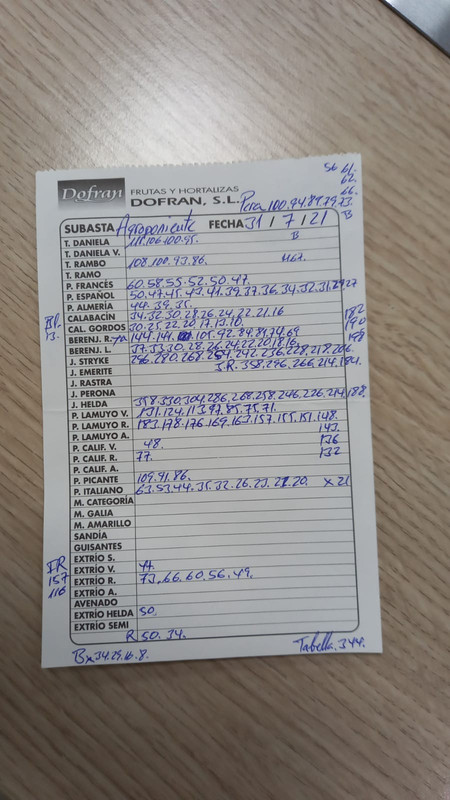 56 61.
62.
66.
Dofran FRUTAS Y HORTALIZAS
DOFRAN, S.L. Pera 100.94.89.79.73.
B
SUBASTA Agroponiente FECHA 31 / 7 / 21
T. DANIELA 111.106.100.95. B
T. DANIELA V.
T. RAMBO 108.100.93.86.
T. RAMO
P. FRANCÉS 60.58.55.52.50.47.
P. ESPAÑOL 50.47.45.43.41.39.37.36.34.32.31.29.27
P. ALMERÍA 44.39.35.
CALABACÍN 34.32.30.28.26.24.22.21.16 182
CAL. GORDOS 30.25.22.20.17.13.10. 190
13. BERENJ. R. 144.141. 105.92.84.81.74.69 198
BERENJ. L. 37.33.30.28.26.24.22.20.18.16.
J. STRYKE 296.280.268.254.242.236.228.218.206.
J. EMERITE J.R. 358.296.266.214.184.
J. RASTRA
J. PERONA
J. HELDA 358.330.304.286.268.258.246.226.214.188.
P. LAMUYO V. 131.124.113.97.85.75.71.
P. LAMUYO R. 183.178.176.169.163.157.155.151.148.
P. LAMUYO A. 143.
P. CALIF. V. 48. 136
P. CALIF. R. 77. 132
P. CALIF. A.
P. PICANTE 109.91.86.
P. ITALIANO 63.53.44.35.32.26.23.22.20. x 21
M. CATEGORÍA
M. GALIA
M. AMARILLO
SANDÍA
GUISANTES
FR EXTRÍO S.
157 EXTRÍO V. 44.
116 EXTRÍO R. 73.66.60.56.49.
EXTRÍO A.
AVENADO
EXTRÍO HELDA 50.
EXTRÍO SEMI
R 50.34.
Bx 34.29.16.8. Tabella.344.